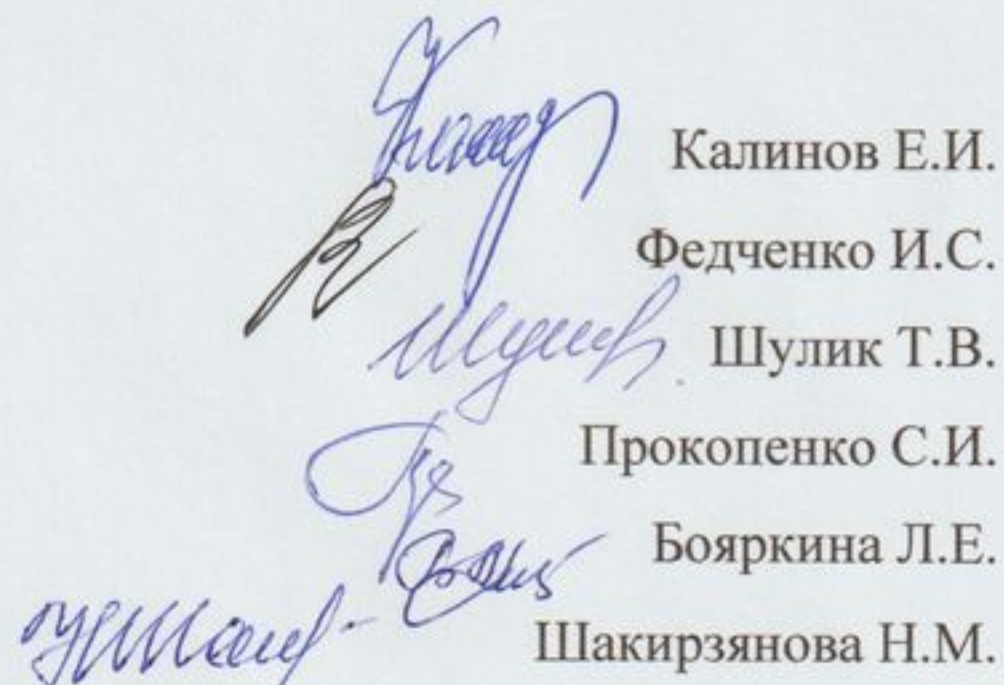 Калинов Е.И.
Федченко И.С.
Шулик Т.В.
Прокопенко С.И.
Бояркина Л.Е.
Шакирзянова Н.М.